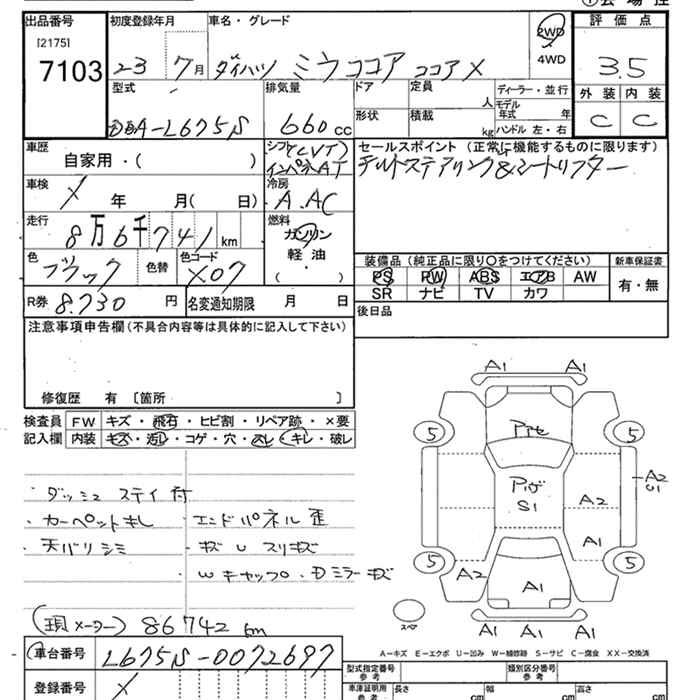 出品番号 初度登録年月 車名・グレード 2WD 評価点
[2175] 4WD
7103 23 7月 ダイハツ ミラココア ココアX 3.5
型式 排気量 ドア 定員 人 ディーラー・並行 外装 内装
形状 積載 kg モデル年式 年 C C
DBA-L675S 660cc ハンドル 左・右
車歴 シフト(CVT) セールスポイント(正常に機能するものに限ります)
自家用・( ) インパネAT チルトステアリング&シートリフター
車検 冷房
X 年 月( 日) A.AC
走行 燃料
8万6千741km ガソリン
軽油
( )
色 色替 色コード 装備品(純正品に限り○をつけてください) 新車保証書
ブラック X07 PS PW ABS エアB AW 有・無
SR ナビ TV カワ
R券 8.730円 名変通知期限 月 日 後日品
注意事項申告欄(不具合内容等は具体的に記入して下さい)
修復歴 有 [箇所 ]
検査員 FW キズ・飛石・ヒビ割・リペア跡・×要
記入欄 内装 キズ・汚レ・コゲ・穴・スレ・キレ・破レ
A1 A1
5 5
A2
S1
S1 A2
A1
5 5
A2 A1
スペア A1 A1 A1
・ダッシュ ステイ付
・カーペットキレ ・エンドパネル歪
・天バリシミ ・キズUスリキズ
・Wキャップ・Dミラーキズ
(現メーター) 86742km
A-キズ E-エクボ U-凹み W-補修跡 S-サビ C-腐食 XX-交換済
車台番号 L675S-0072697 型式指定番号 参考 類別区分番号 参考
登録番号 X 車庫証明用 参考 長さ cm 幅 cm 高さ cm